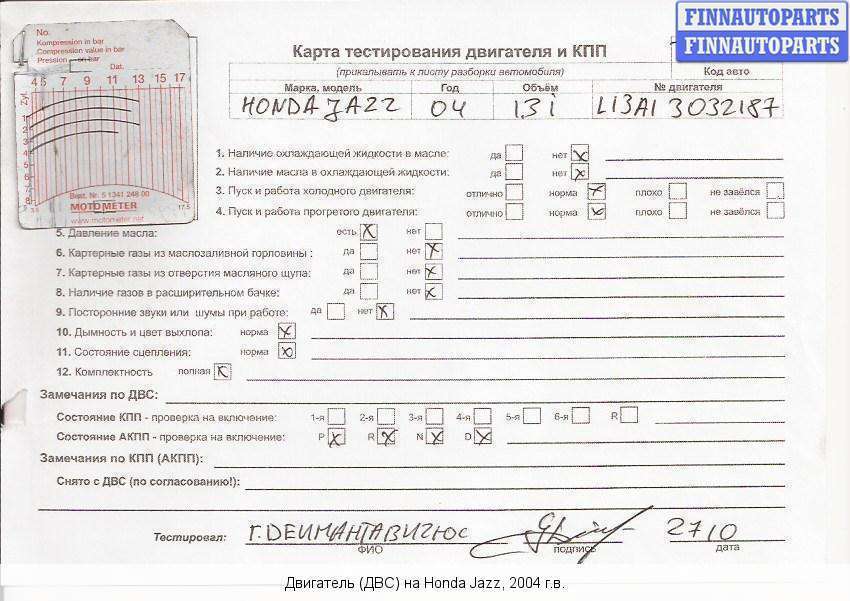 FINNAUTOPARTS
FINNAUTOPARTS
No.
Kompression in bar
Compression value in bar
Pression en bar
Dat.
4 5 7 9 11 13 15 17
Zyl.
1
2
3
4
5
6
7
8
3,5 17,5
Best. Nr. 5 1341 248 00
MOTOMETER
www.motometer.net
Карта тестирования двигателя и КПП
(прикалывать к листу разборки автомобиля)
Код авто
Марка, модель Год Объём № двигателя
HONDA JAZZ 04 1.3 i L13A1 3032187
1. Наличие охлаждающей жидкости в масле: да нет X
2. Наличие масла в охлаждающей жидкости: да нет X
3. Пуск и работа холодного двигателя: отлично норма X плохо не завёлся
4. Пуск и работа прогретого двигателя: отлично норма X плохо не завёлся
5. Давление масла: есть X нет
6. Картерные газы из маслозаливной горловины : да нет X
7. Картерные газы из отверстия масляного щупа: да нет X
8. Наличие газов в расширительном бачке: да нет X
9. Посторонние звуки или шумы при работе: да нет X
10. Дымность и цвет выхлопа: норма X
11. Состояние сцепления: норма X
12. Комплектность полная X
Замечания по ДВС:
Состояние КПП - проверка на включение: 1-я 2-я 3-я 4-я 5-я 6-я R
Состояние АКПП - проверка на включение: P X R X N X D X
Замечания по КПП (АКПП):
Снято с ДВС (по согласованию!):
Тестировал: Г. DЕИМАНТАВИЧЮС 2710
ФИО подпись дата
Двигатель (ДВС) на Honda Jazz, 2004 г.в.